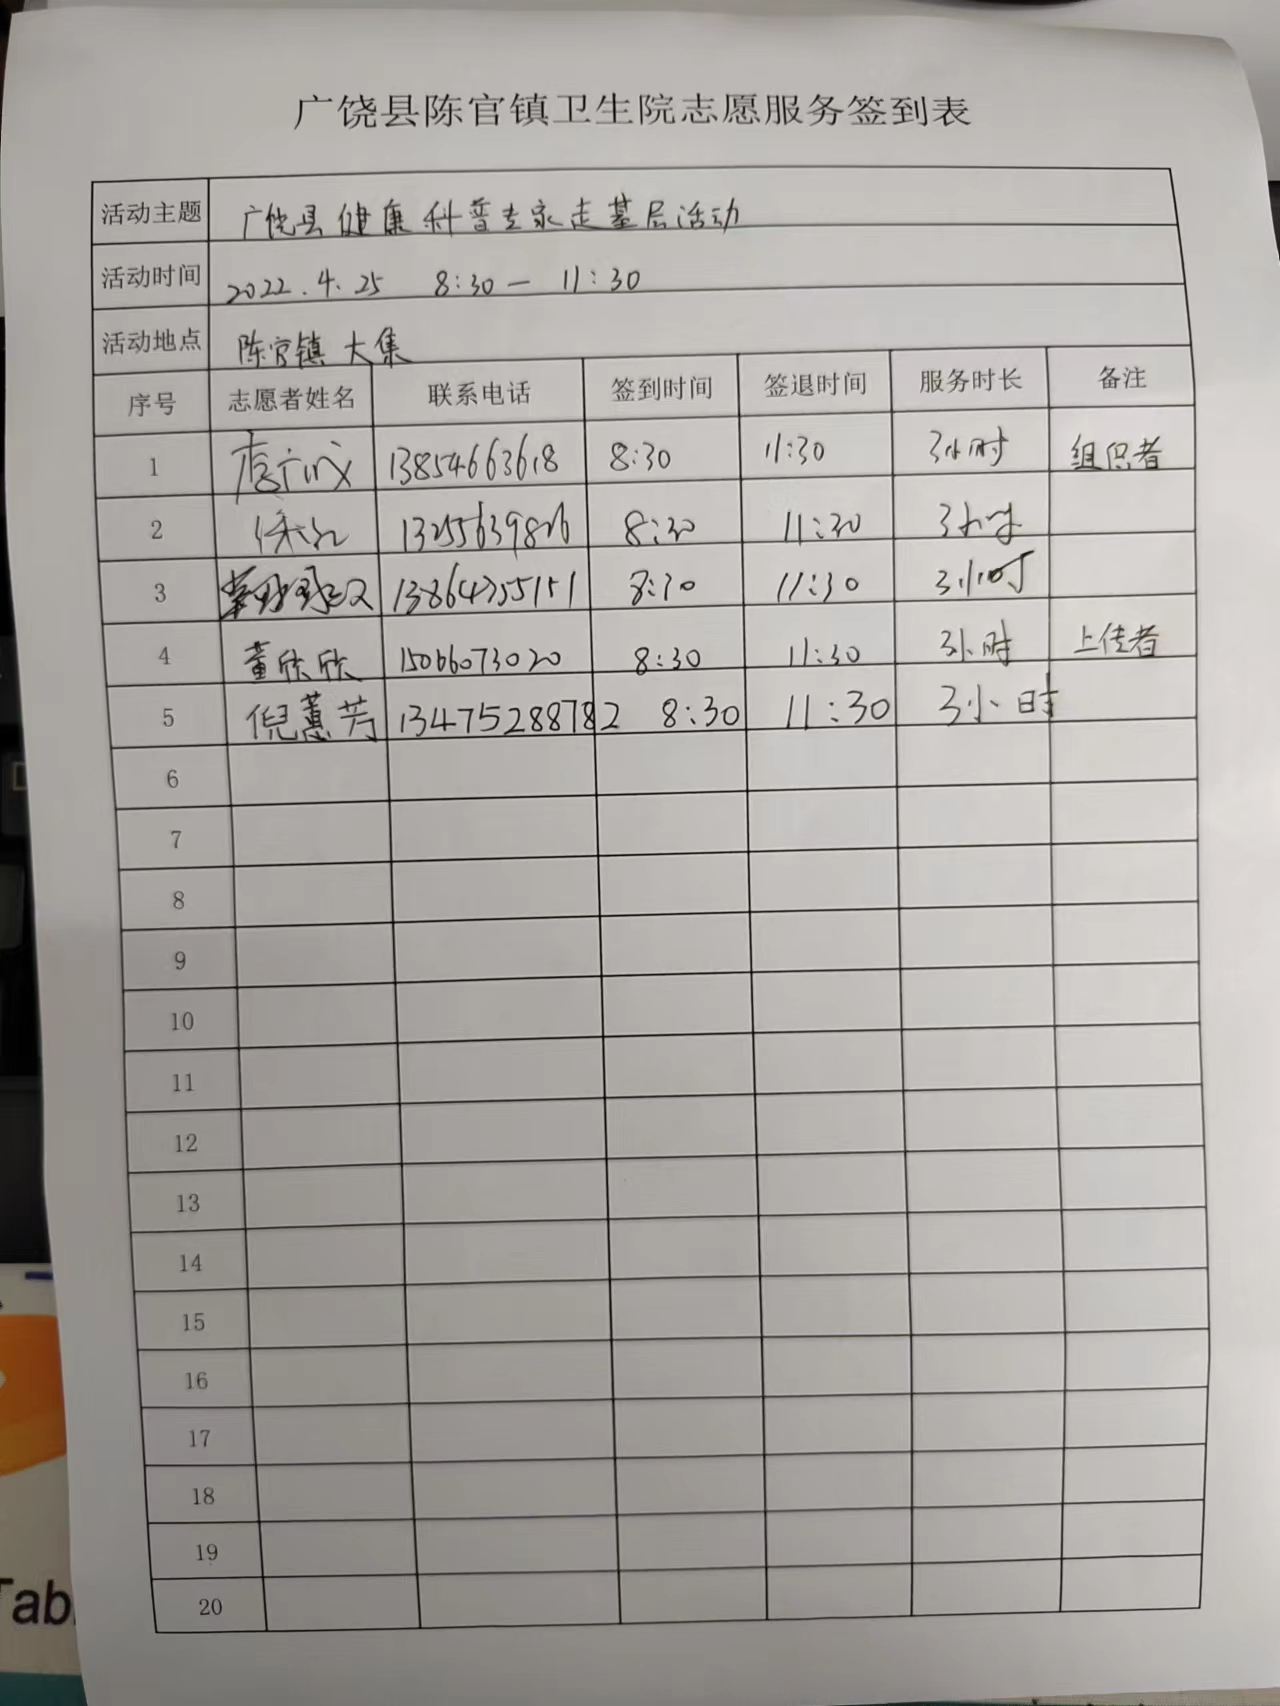 广饶县陈官镇卫生院志愿服务签到表
活动主题 广饶县健康科普专家走基层活动
活动时间 2022.4.25 8:30 — 11:30
活动地点 陈官镇大集
序号 志愿者姓名 联系电话 签到时间 签退时间 服务时长 备注
1 13854663618 8:30 11:30 3小时 组织者
2 13255639826 8:30 11:30 3小时
3 8:30 11:30 3小时
4 董欣欣 15066073020 8:30 11:30 3小时 上传者
5 倪蕙芳 13475288782 8:30 11:30 3小时
6
7
8
9
10
11
12
13
14
15
16
17
18
19
20
Tab